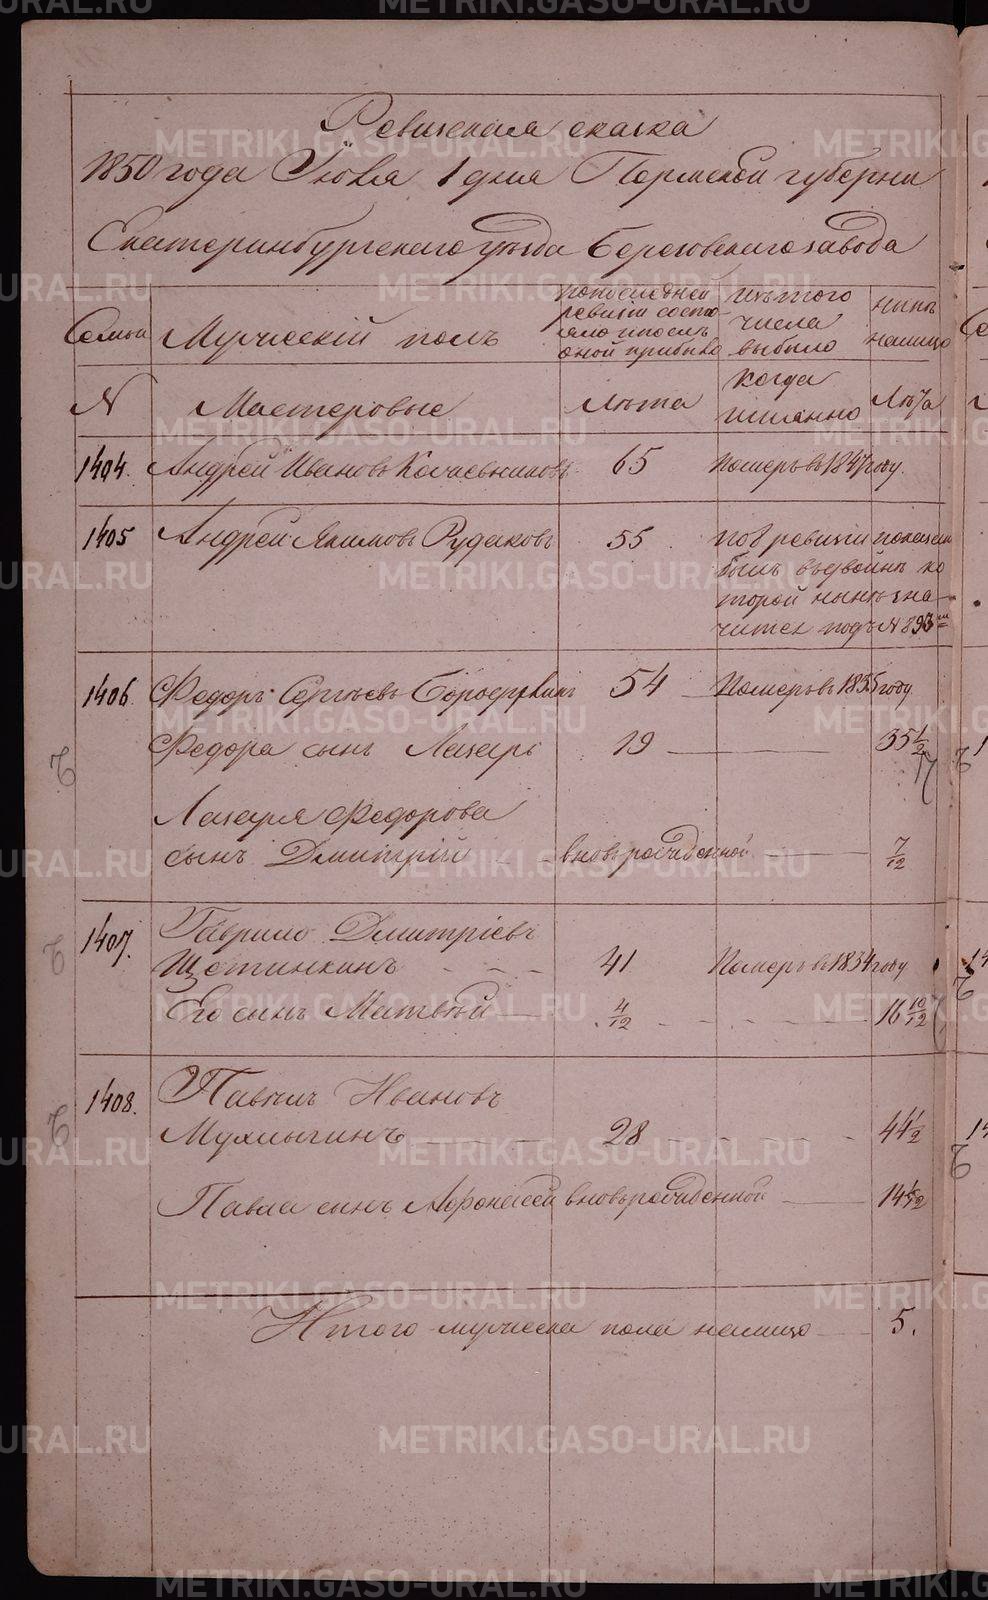 Ревизская сказка
1850 года Июля 1 дня Пермской губернии
Екатеринбургскаго уезда Березовскаго завода
Семьи
Мужескій полъ
по последней ревизіи состояло и после оной прибыло
изъ того числа выбыло
ныне на лицо
№
Мастеровые
Лѣта
когда именно
Лѣта
1404.
Андрей Ивановъ
65
Померъ въ 1847 году.
1405
Андрей Якимовъ Рудаковъ
55
по 8 ревизіи показанъ
былъ вдвойнѣ ко
торой нынѣ зна-
чится подъ № 893м
1406
Федоръ Сергѣевъ Бородулинъ
54
Померъ въ 1835 году.
Федора сынъ Лазарь
19
35 1/2
Лазаря Федорова
сынъ Дмитрій
вновьрожденной
7/12
1407.
Гаврило Дмитріевъ
Щетинкинъ
41
Померъ въ 1834 году
Его сынъ Матвѣй
4/12
16 10/12
1408.
Павелъ Ивановъ
Мухлыгинъ
28
44 1/2
Павла сынъ Афонасей вновьрожденной
14
Итого мужеска пола налицо
5.
METRIKI.GASO-URAL.RU